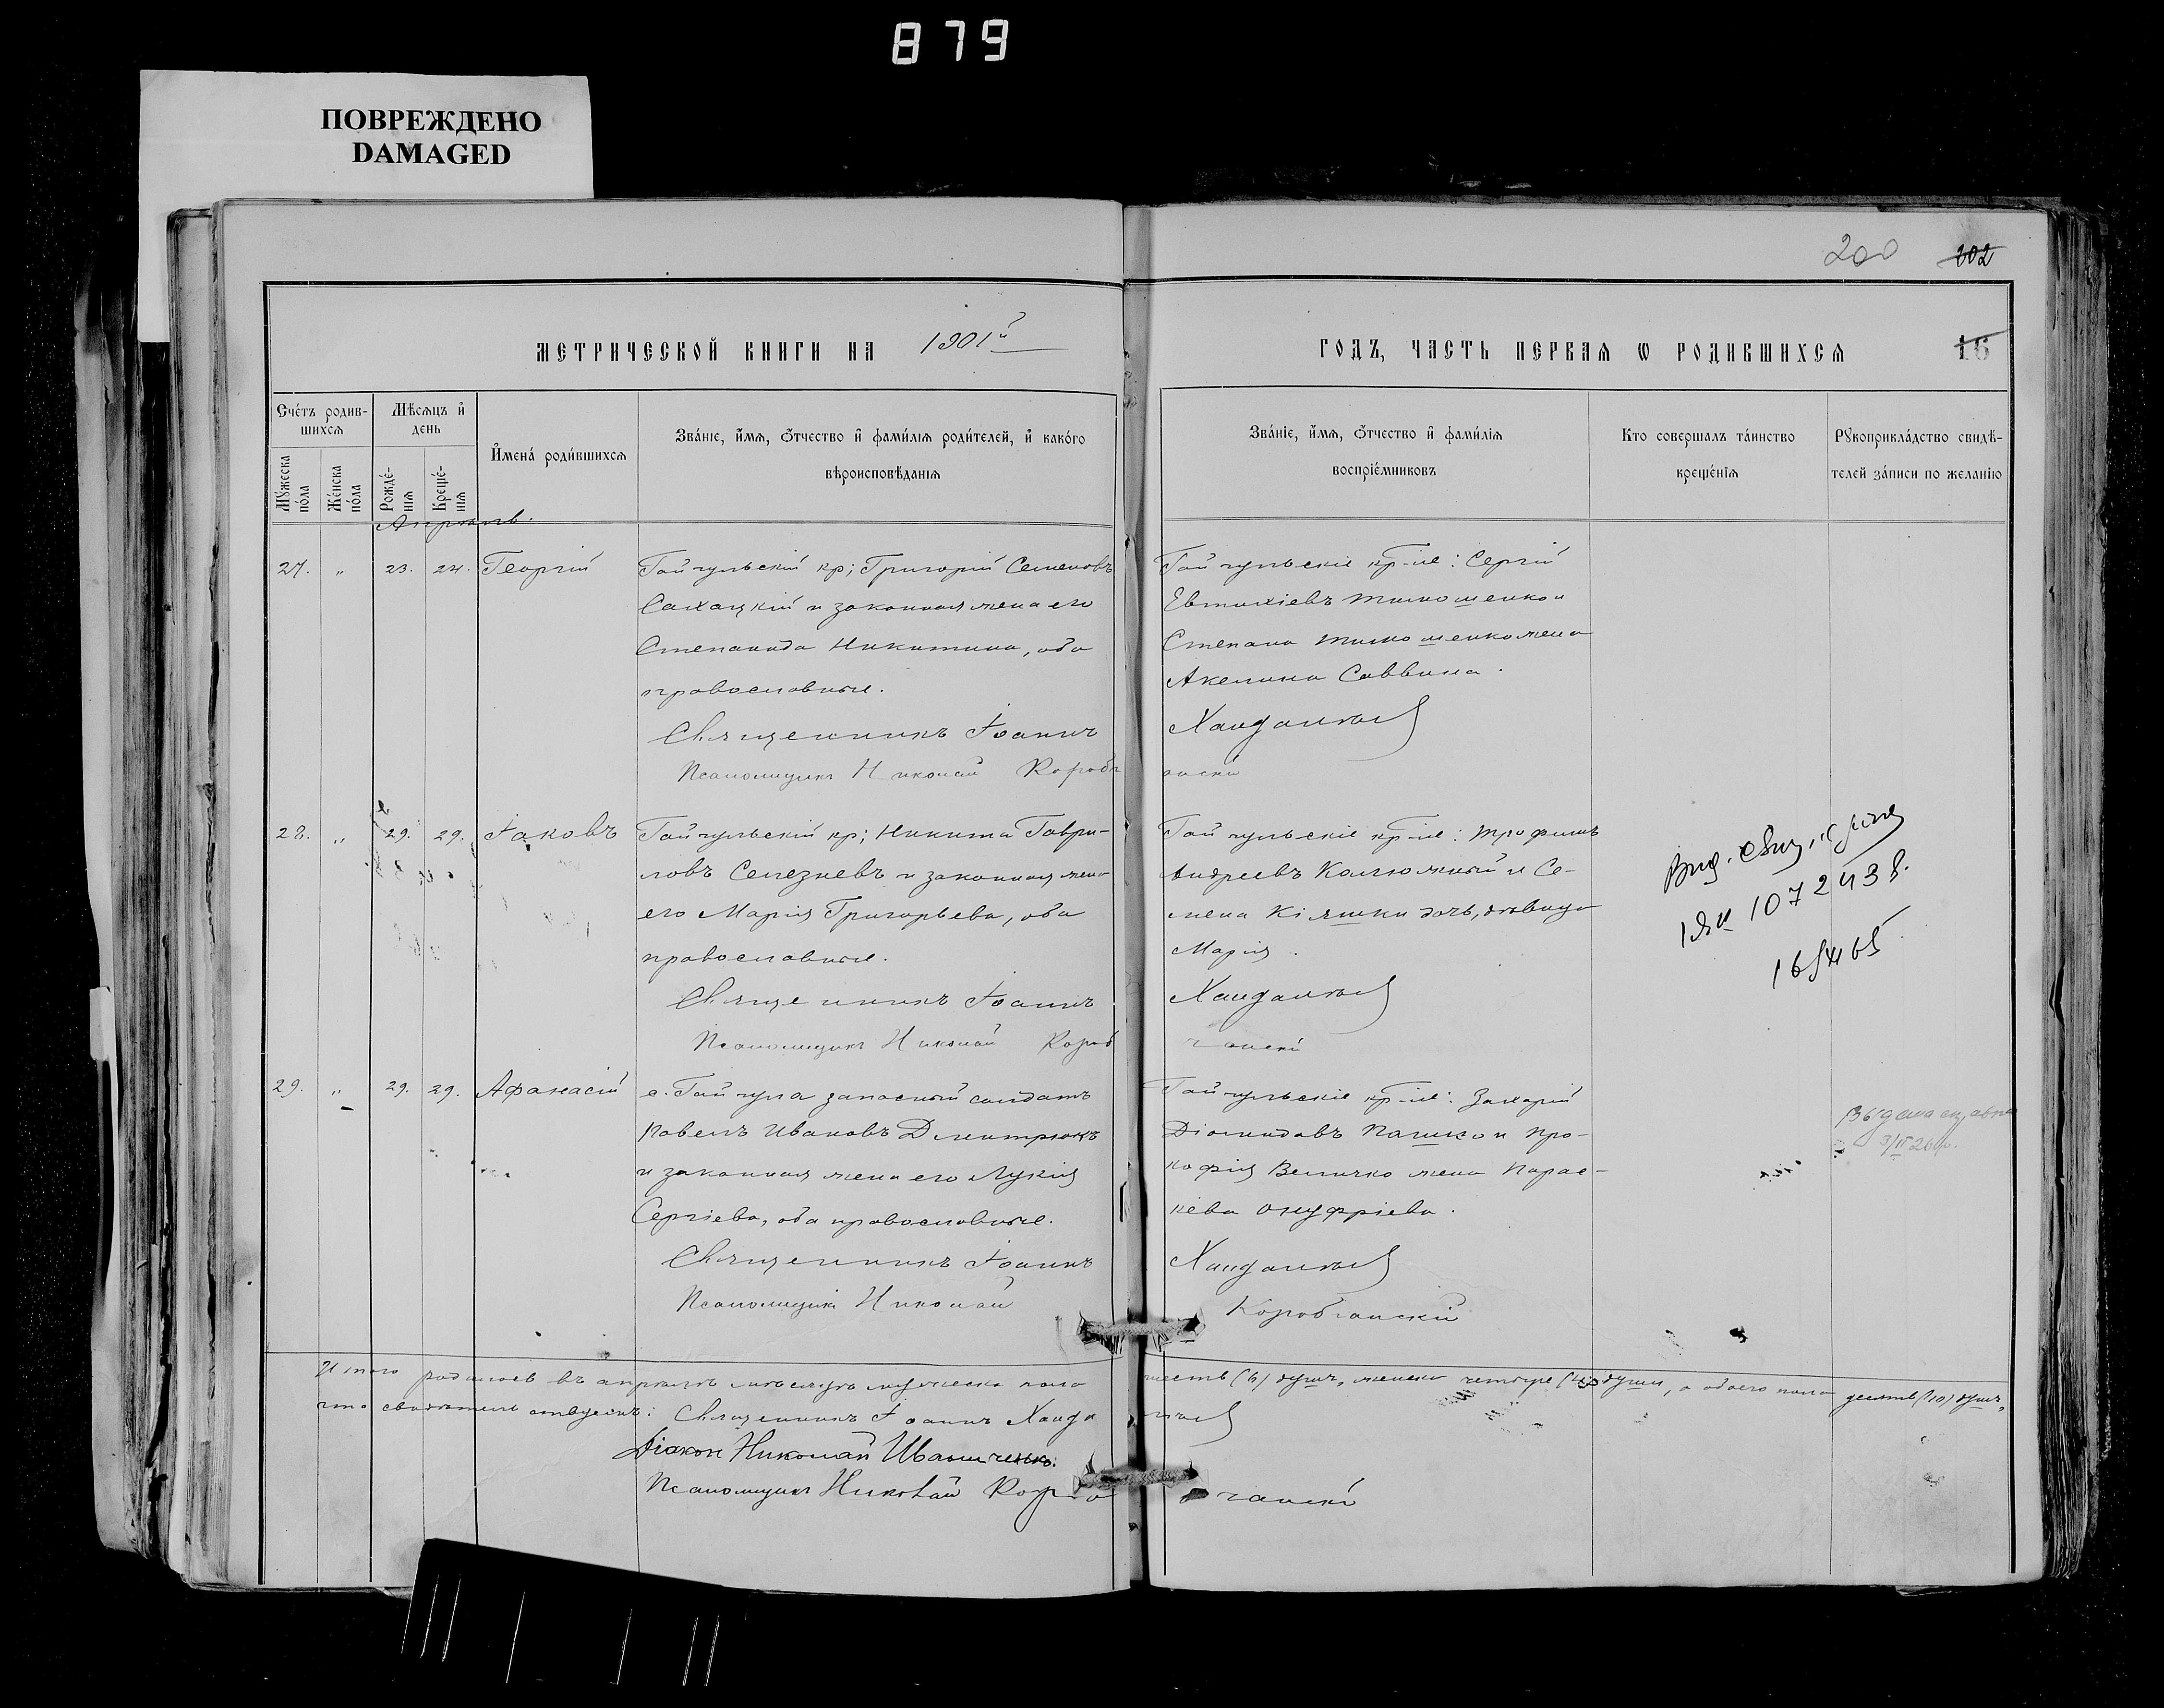 879
ПОВРЕЖДЕНО
DAMAGED
200 202
МЕТРИЧЕСКОЙ КНИГИ НА 1901й
ГОДЪ, ЧАСТЬ ПЕРВАЯ Ѡ РОДИВШИХСЯ 16
Счетъ родив-
шихся
Мужеска пола
Женска пола
Мѣсяцъ и
день
Рожде-
нія
Креще-
нія
Имена родившихся
Званіе, имя, отчество и фамилія родителей, и какого
вѣроисповѣданія
Званіе, имя, отчество и фамилія
воспріемниковъ
Кто совершалъ таинство
крещенія
Рукоприкладство свидѣ-
телей записи по желанію
Апрѣль.
27. " 23. 24. Георгій
Гайчульскій кр; Григорій Семеновъ
и законная жена его
Степанида Никитина, оба
православные.
Священникъ Іоаннъ
Псаломщикъ Николай
Гайчульскіе кр-не: Сергій
Евтихіевъ Тимошенко и
Степана Тимошенко жена
Акелина Саввина.
28. " 29. 29. Іаковъ
Гайчульскій кр; Никита Гаври-
ловъ Селезневъ и законная жена
его Марія Григорьева, оба
православные.
Священникъ Іоаннъ
Псаломщикъ Николай
Гайчульскіе кр-не: Трофимъ
Андреевъ и Се-
мена дочь, дѣвица
Марія.
1072438.
29. " 29. 29. Афанасій
с. Гайчула запасный солдатъ
Павелъ Ивановъ Дмитрюкъ
и законная жена его Лукія
Сергіева, оба православные.
Священникъ Іоаннъ
Псаломщикъ Николай
Гайчульскіе кр-не: Захарій
Діомидовъ Пашко и Про-
кофія Величко жена Парас-
кева Онуфріева.
Коробчанскій
Выдана
Итого родилось въ апрѣлѣ мѣсяцѣ мужеска пола шесть (6) душъ, женска четыре (4) души, а обоего пола десять (10) душъ,
что свидѣтельствуемъ: Священникъ Іоаннъ
Діаконъ Николай Иващенко.
Псаломщикъ Николай Коробчанскій